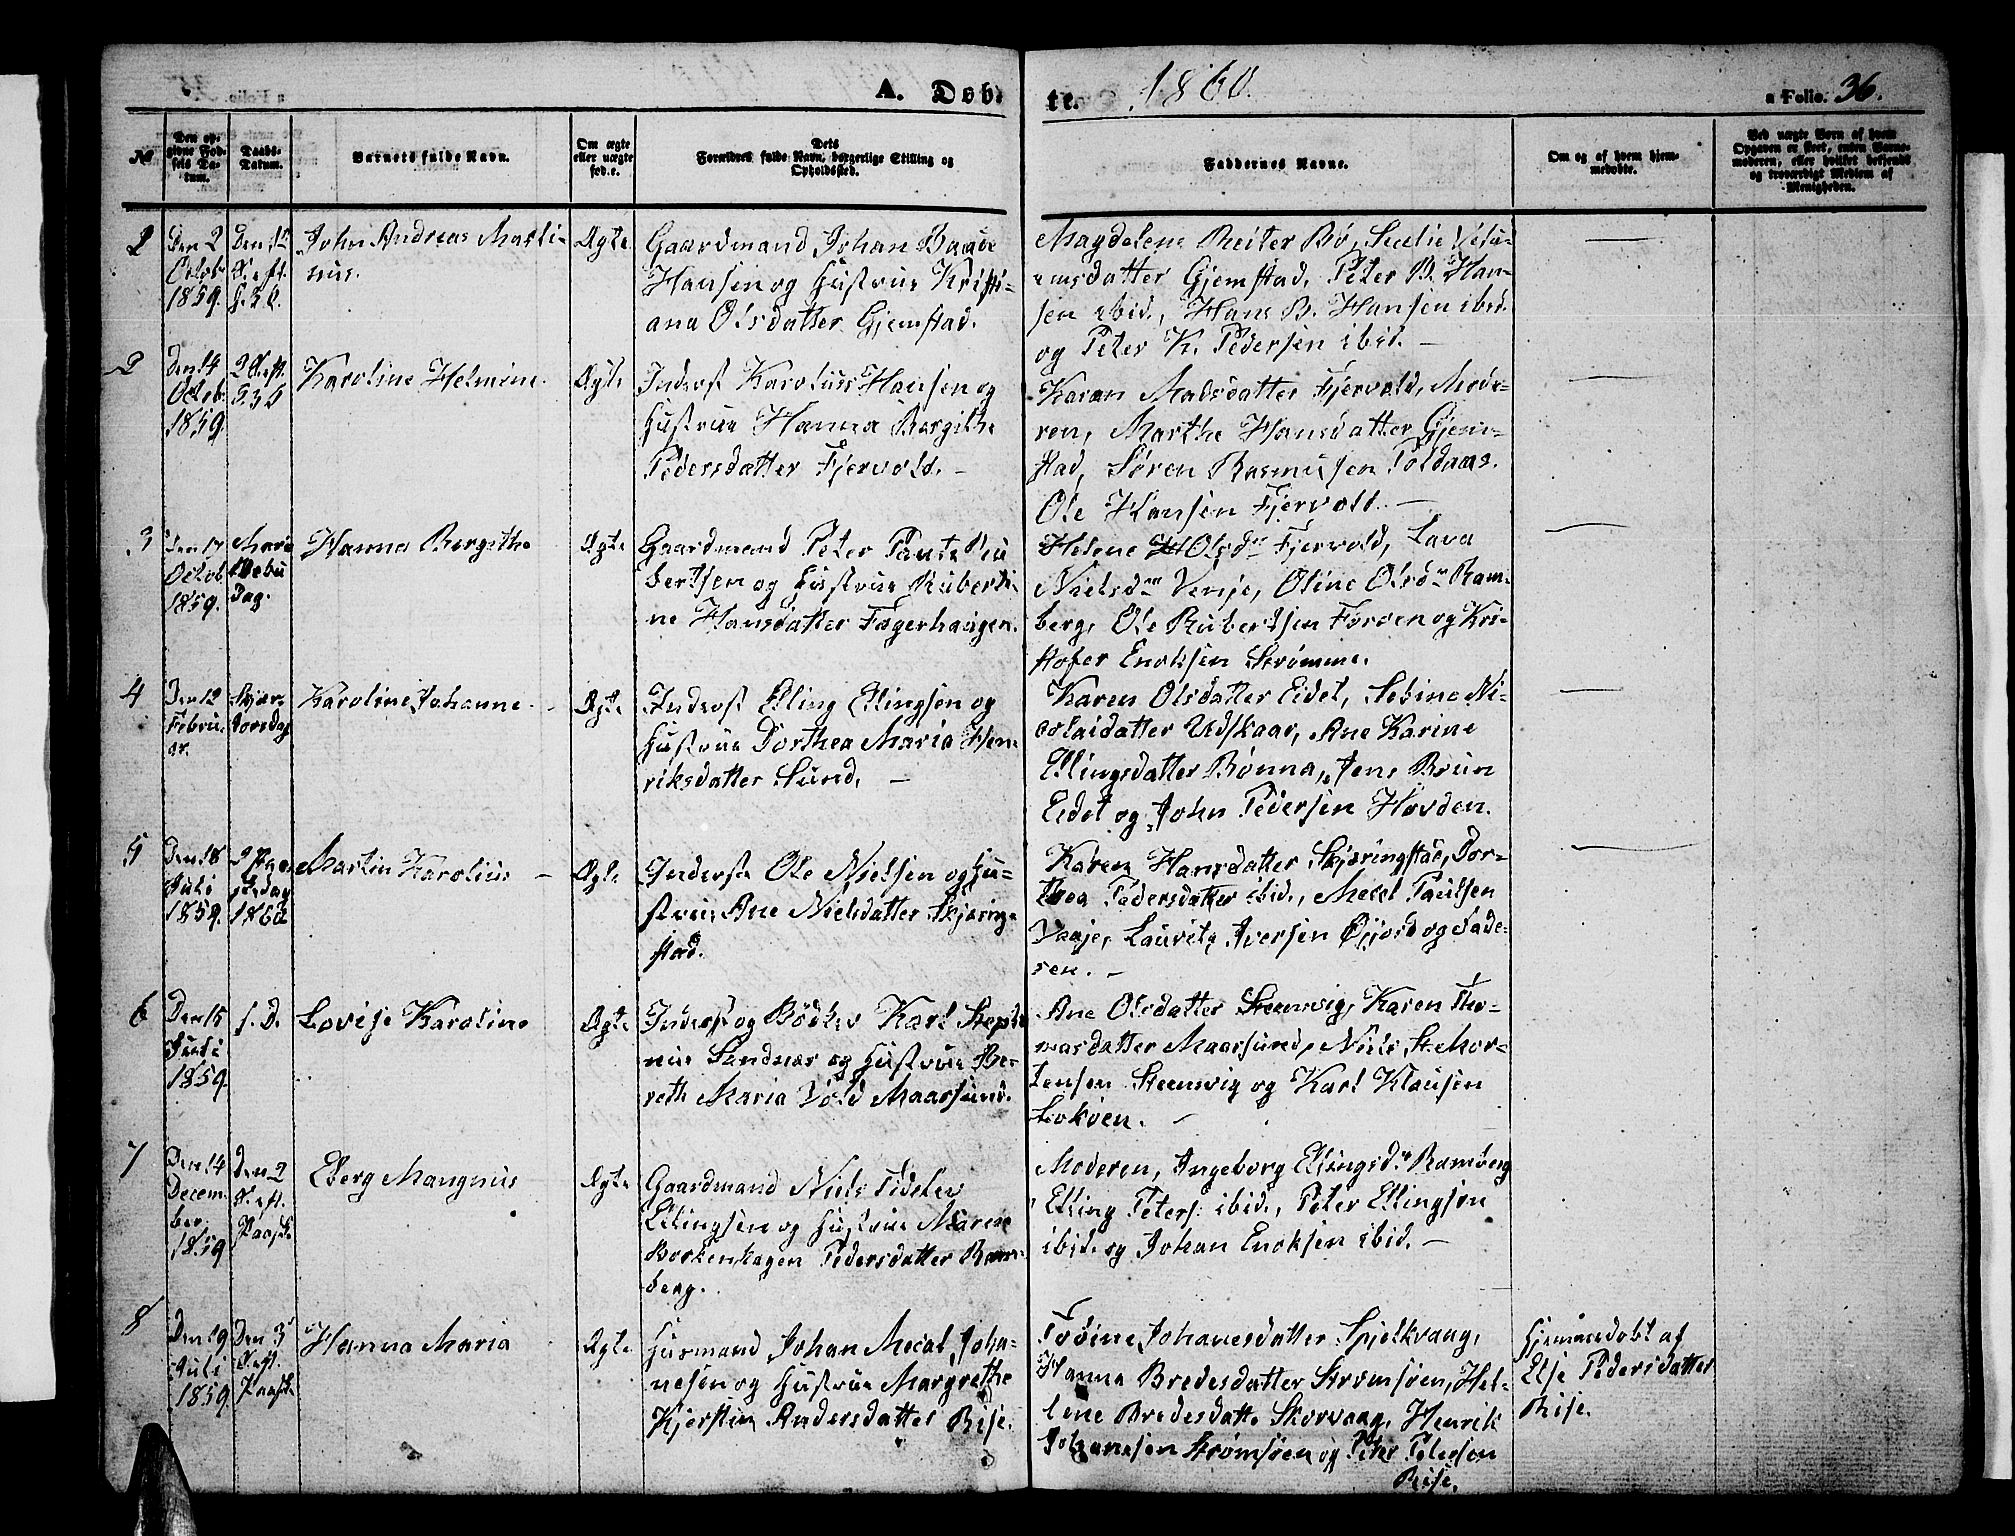 A. Døb-
te.
1860.
a Folio. 36.
No
Den op-
givne Fød-
sels Da-
tum.
Daabs-
Datum.
Barnets fulde Navn.
Om ægte
eller uægte
født.
Dets
Forældres fulde Navn, borgerlige Stilling og
Opholdssted.
Faddernes Navne.
Om og af hvem hjem-
medøbt.
Ved uægte Børn af hvem
Opgaven er skeet, enten Barne-
moderen, eller hvilket bekjendt
og troværdigt Medlem af
Menigheden.
Den 2
Octob
1859.
Den 1st
S. eft.
H. 3 K.
John Andreas Marti-
nus.
Ægte
Gaardmand Johan Baade
Hansen og Hustrue Kristi-
ana Olsdatter Gjemstad.
Magdelene Reiter Bø,
datter Gjemstad, Peter B. Han-
sen ibid., Hans B. Hansen ibid.
og Peter K. Pedersen ibid. —
2
Den 14
Octob
1859
2 S. eft.
Karoline Helmine
Ægte
Inderst Karoluss Hansen og
Hustrue Hanna Bergithe
Pedersdatter Fjervold. —
Karen Madsdatter Fjervold, Mode-
ren, Marthe Hansdatter Gjem-
stad, Søren Rasmusen Toldaas.
Ole Hansen Fjervold. —
3
Den 17
Octob
1859.
Maria
Bebu
Dag.
Hanna Bergithe
Ægte
Gaardmand Peter Pantz Ru
bertsen og Hustrue Ruberti-
ne Hansdatter Fagerhaugen.
Helene Olsdr Fjervold, Lava
Nielsdr Venje, Oline Olsdr Ram-
berg, Ole Rubertsen Forøen og Kri-
stofer Enoksen Strømme.
4
Den 12
Febru-
ar.
Skjær-
torsdag
Karoline Johanne
Ægte
Inderst Elling Ellingsen og
Hustrue Dorthea Maria Hen-
riksdatter Sund. —
Karen Olsdatter Eidet, Sebine Ni-
colaidatter Udskaar, Ane Karine
Ellingsdatter Bønna, Jens Brun
Eidet og John Pedersen Hovden.
5
Den 18
Juli
1859.
2 Paa-
skedag
1860
Martin Karolius —
Ægte
Inderst Ole Nielsen og Hu-
strue Ane Nielsdatter Skjæring-
stad.
Karen Hansdatter Skjæringstad, Dor-
thea Pedersdatter ibid., Mecal Paulsen
Vaaje, Lauritz Iversen Øijord og Fade-
ren. —
6
Den 15
Juli
1859
s. D.
Lovise Karoline
Ægte
Inderst og Bødker Karl Stepha
nus Sandnæs og Hustrue Be-
reth Maria Vold Maarsund.
Ane Olsdatter Steenvig, Karen Tho-
masdatter Maarsund, Niels St. Mor-
tensen Steenvig og Karl Klausen
Lokøen. —
7
Den 14
Decem-
ber
1859
Den 2
S. eft.
Paaske
Eberg Mangnus
Ægte
Gaardmand Niels Fideler
Ellingsen og Hustrue Maren
Borkenhagen Pedersdatter Ram-
berg.
Moderen, Ingeborg Ellingsdr Ramberg
Elling Peters: ibid., Peter Ellingsen
ibid. og Johan Enoksen ibid. —
8
Den 19
Juli
1859
Den 3d
S. eft.
Paaske
Hanna Maria
Ægte
Husmand Johan Mecal Joha-
nesen og Hustrue Margrethe
Kjerstin Andersdatter Rise.
Johanesdatter Spjelkvaag,
Hanna Bredesdatter Strømsøen, Hel-
lene Bredesdatte Skorvaag, Henrik
Johannesen Strømsøen og Peter Petersen
Rise.
Hjemmedøbt af
Else Pedersdatter
Rise.